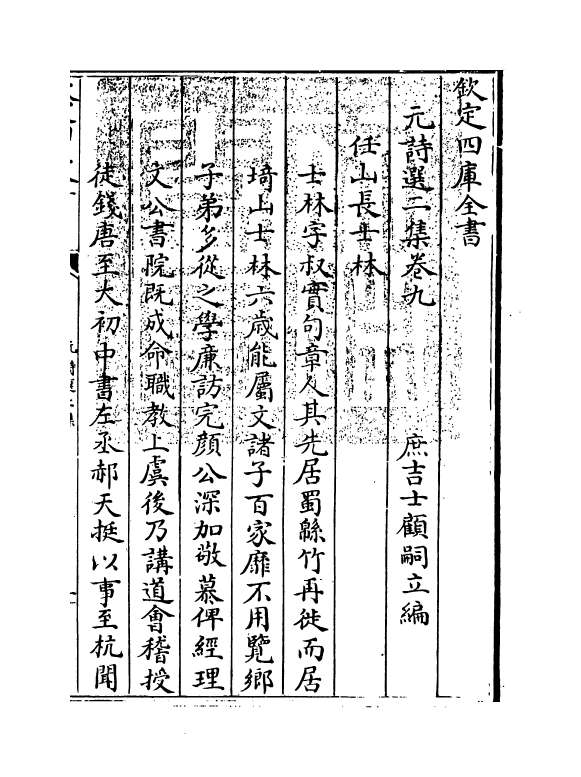 欽定四庫全書
元詩選二集卷九
庶吉士顧嗣立編
任山長士林
士林字叔實句章人其先居蜀緜竹再徙而居
埼山士林六歲能屬文諸子百家靡不用覽鄉
子弟多從之學廉訪完顏公深加敬慕俾經理
文公書院既成命職教上虞後乃講道會稽授
徒錢唐至大初中書左丞郝天挺以事至杭聞